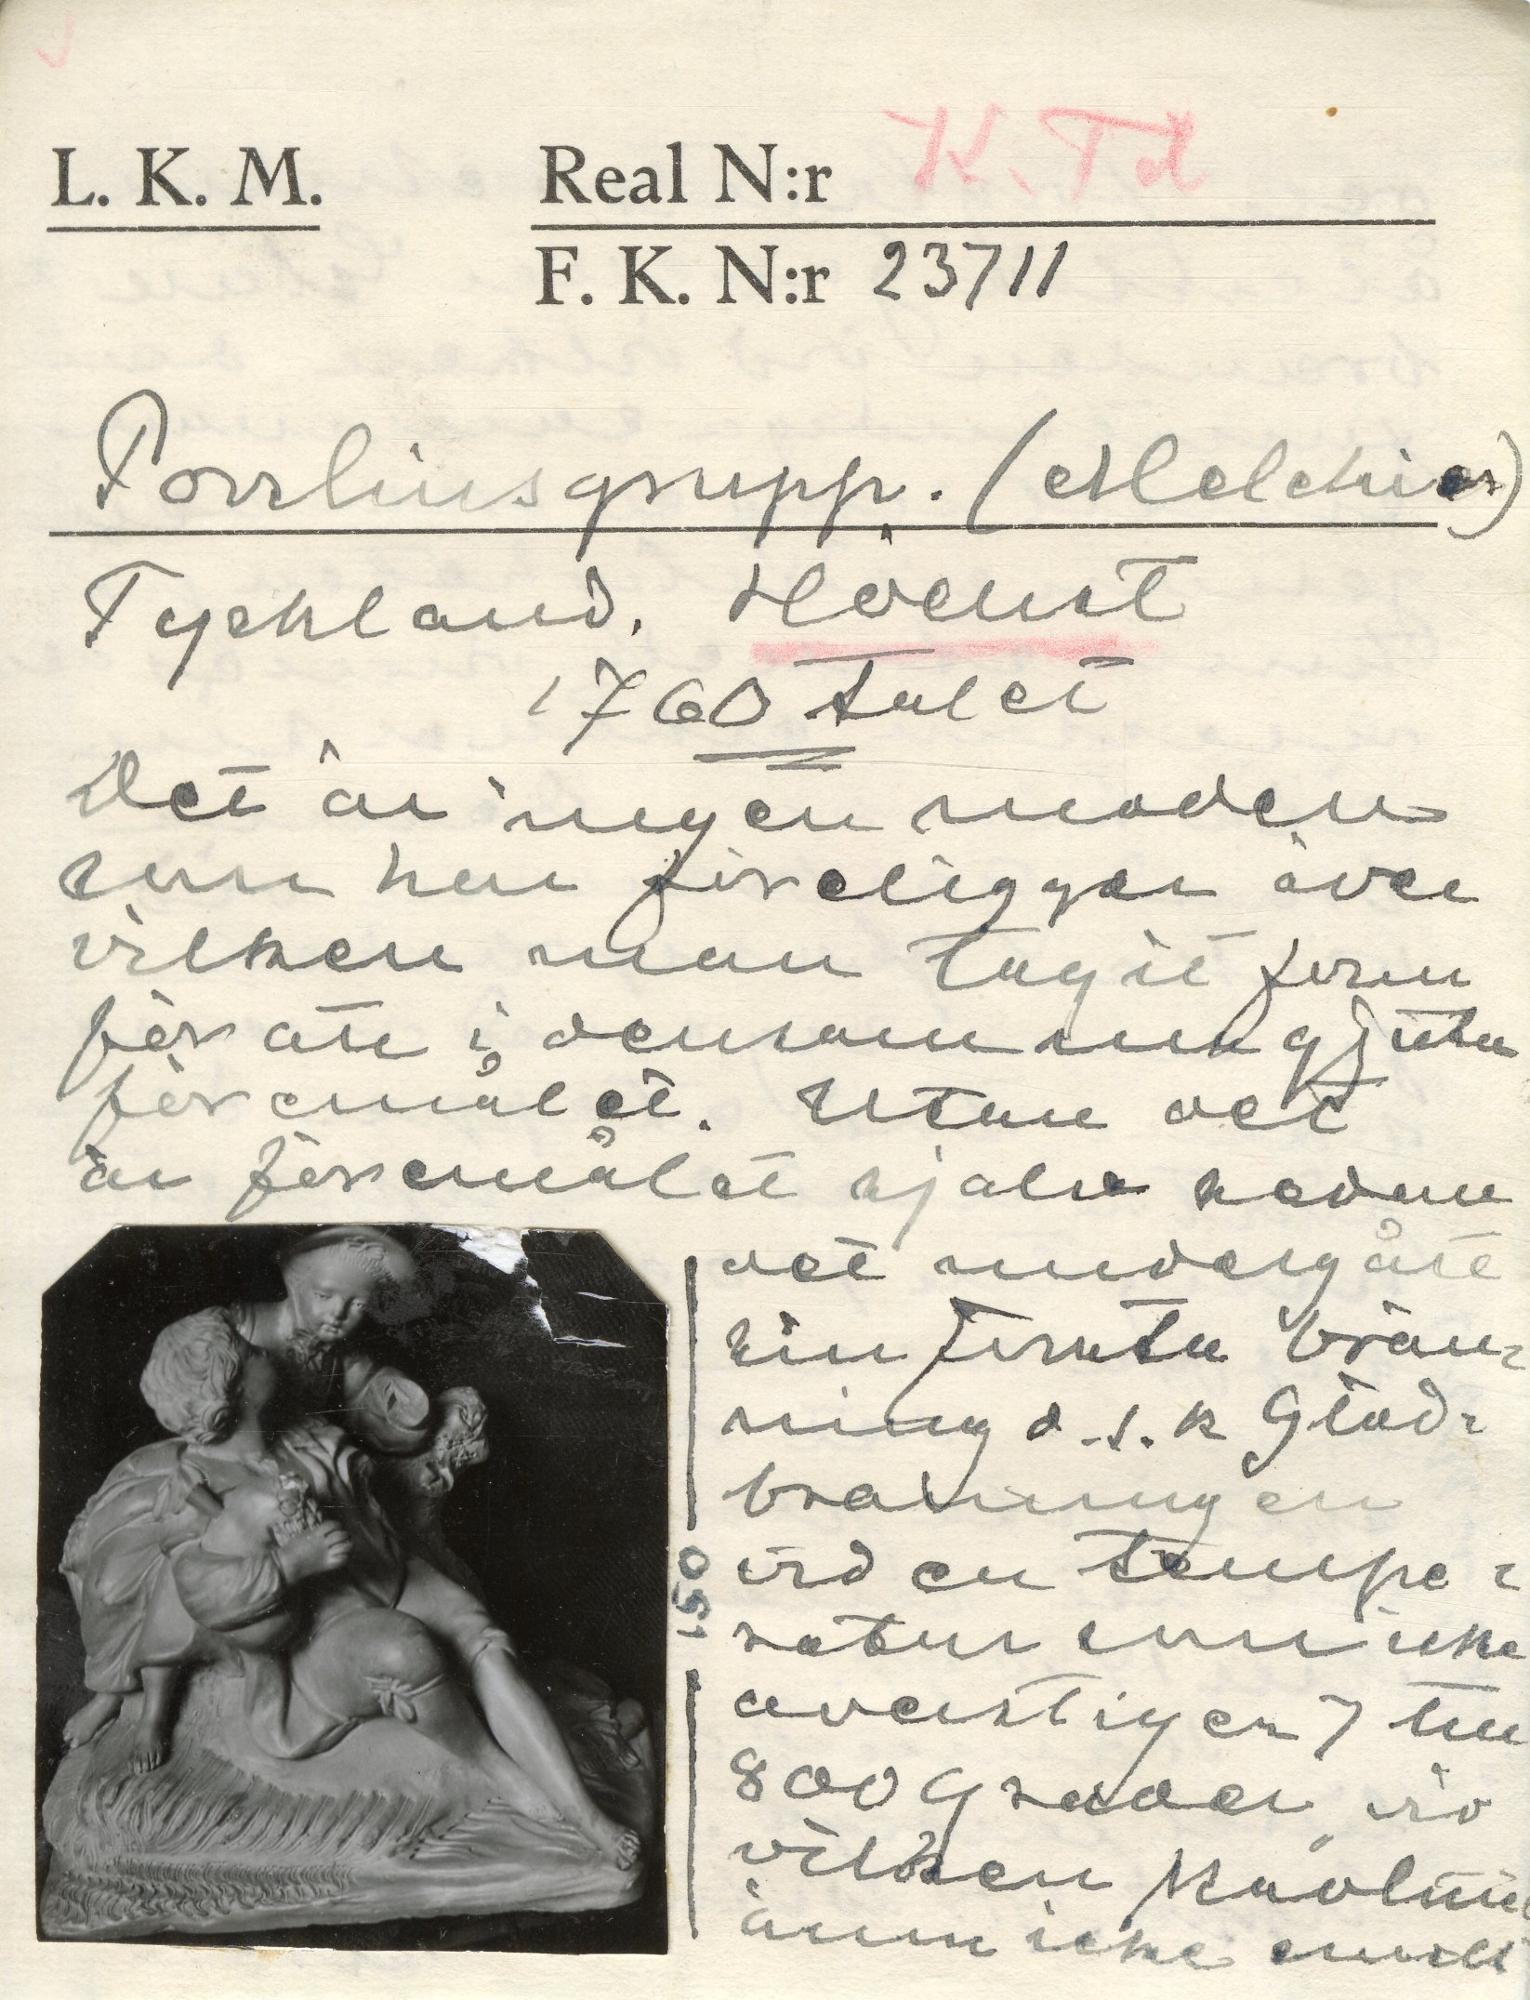 L. K. M.
Real N:r K. Td
F. K. N:r 23711
Porslinsgrupp. (Melchior)
Tyskland. Höchst
1760 talet
Det är ingen moden
som här föreligger över
vilken man tagit form
för att i densamma gjuta
föremålet. Utan det
är föremålet sjelv sedan
det undergått
sin första brän-
ning d.s.k Glöd-
bränningen
vid en tempe-
ratur som icke
överstiger 7 till
800 Grader, vid
vilken Kaolinen
ännu icke smält
150